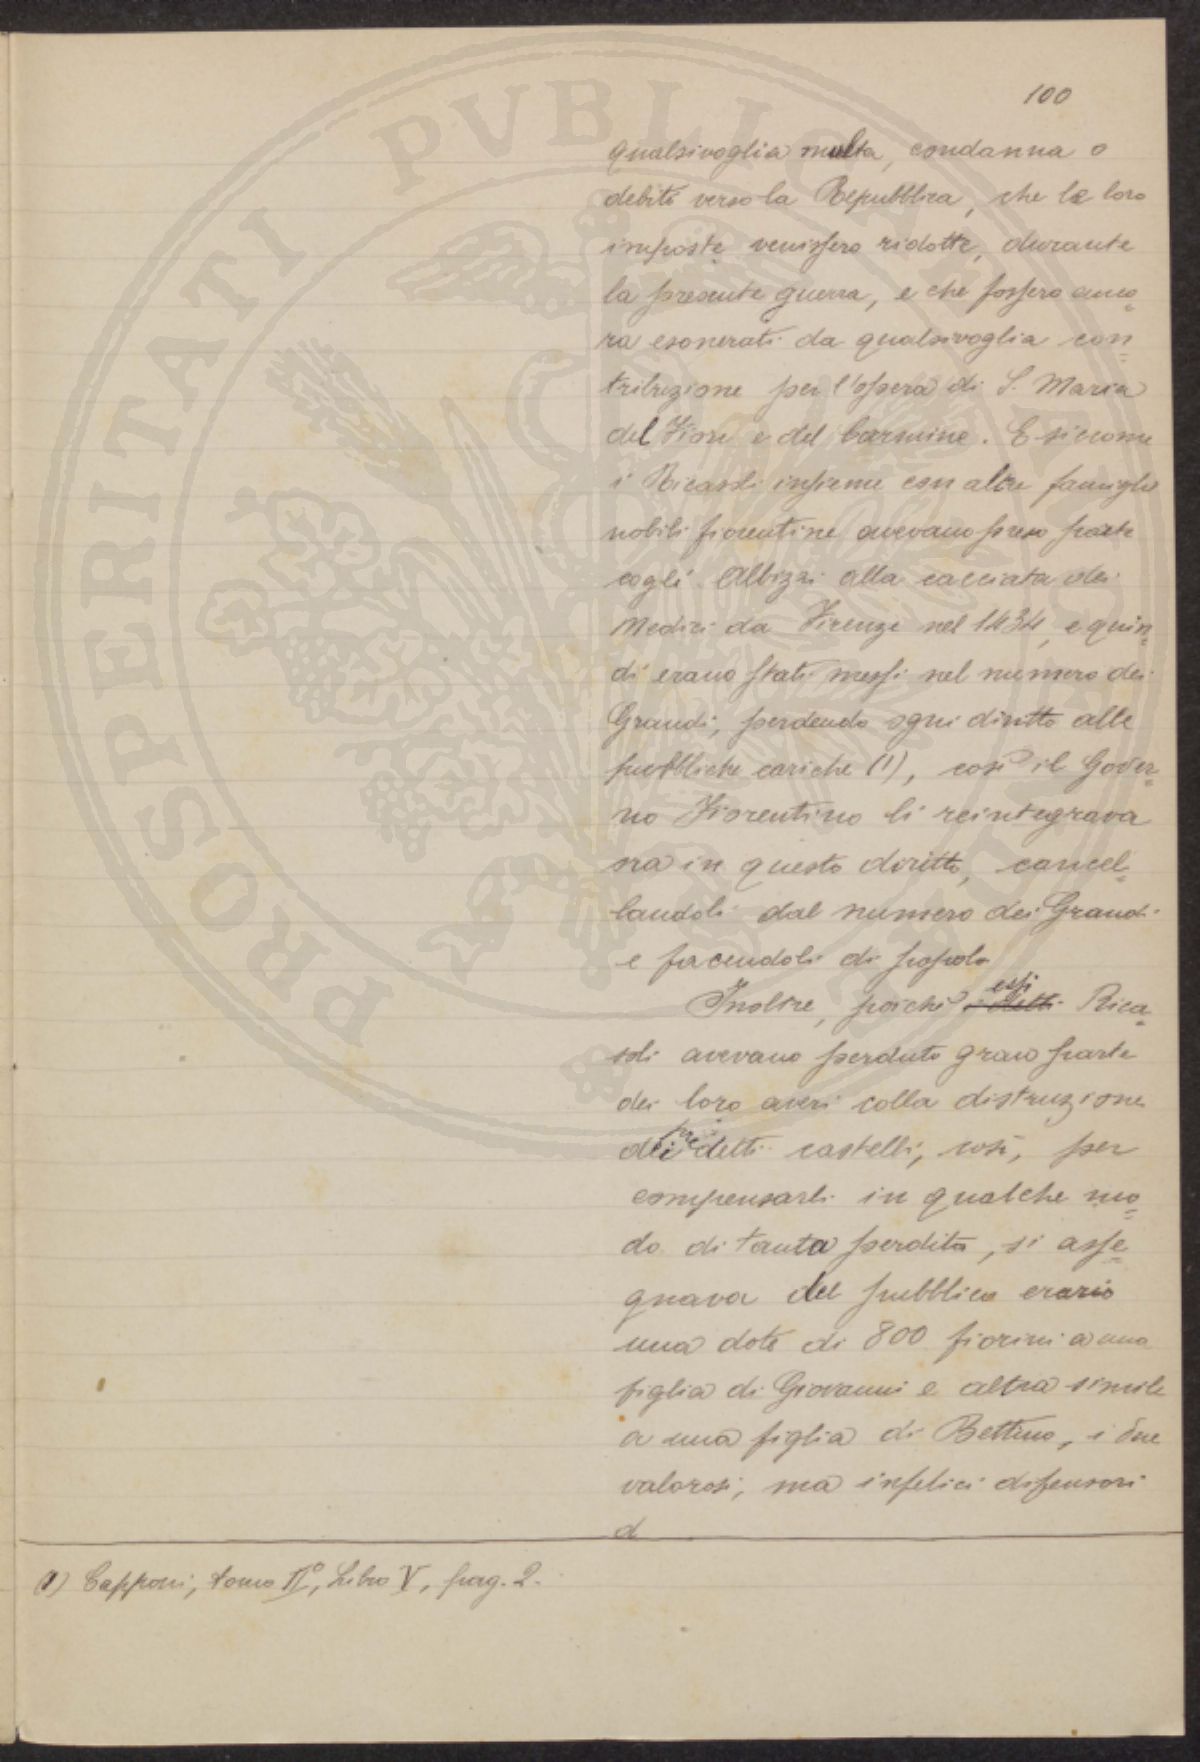 100
qualsivoglia multa, condanna o
debito verso la Repubblica, che le loro
imposte venissero ridotte, durante
la presente guerra, e che fossero anco=
ra esonerati da qualsivoglia con=
tribuzione per l'opera di S. Maria
del Fiore e del Carmine. E siccome
i Ricasoli insieme con altre famiglie
nobili fiorentine avevano preso parte
cogli Albizzi alla cacciata dei
Medici da Firenze nel 1434, e quin=
di erano stati messi nel numero dei
Grandi, perdendo ogni diritto alle
pubbliche cariche (1), così il Gover=
no Fiorentino li reintegrava
ora in questo diritto, cancel=
landoli dal numero dei Grandi
e facendoli di popolo
essi
Inoltre, poichè i detti Rica=
soli avevano perduto gran parte
dei loro averi colla distruzione
pre
dei detti castelli, così, per
compensarli in qualche mo=
do di tanta perdita, si asse=
gnava del pubblico erario
una dote di 800 fiorini a una
figlia di Giovanni e altra simile
a una figlia di Bettino, i due
valorosi, ma infelici difensori
d
(1) Capponi, tomo II°, Libro V, pag. 2.
PROSPERITATI PVBLICAE